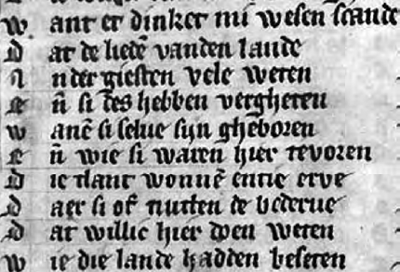 w ant er dinket mi wesen scande
d at de liede vanden lande
A nder giesten vele weten
e n̄ si des hebben vergheten
w anē si selue sijn gheboren
e n̄ wie si waren hier tevoren
d ie tlant wonnē entie erve
d aer si of nutten de bederue
d at willic hier doen weten
w ie die lande hadden beseten